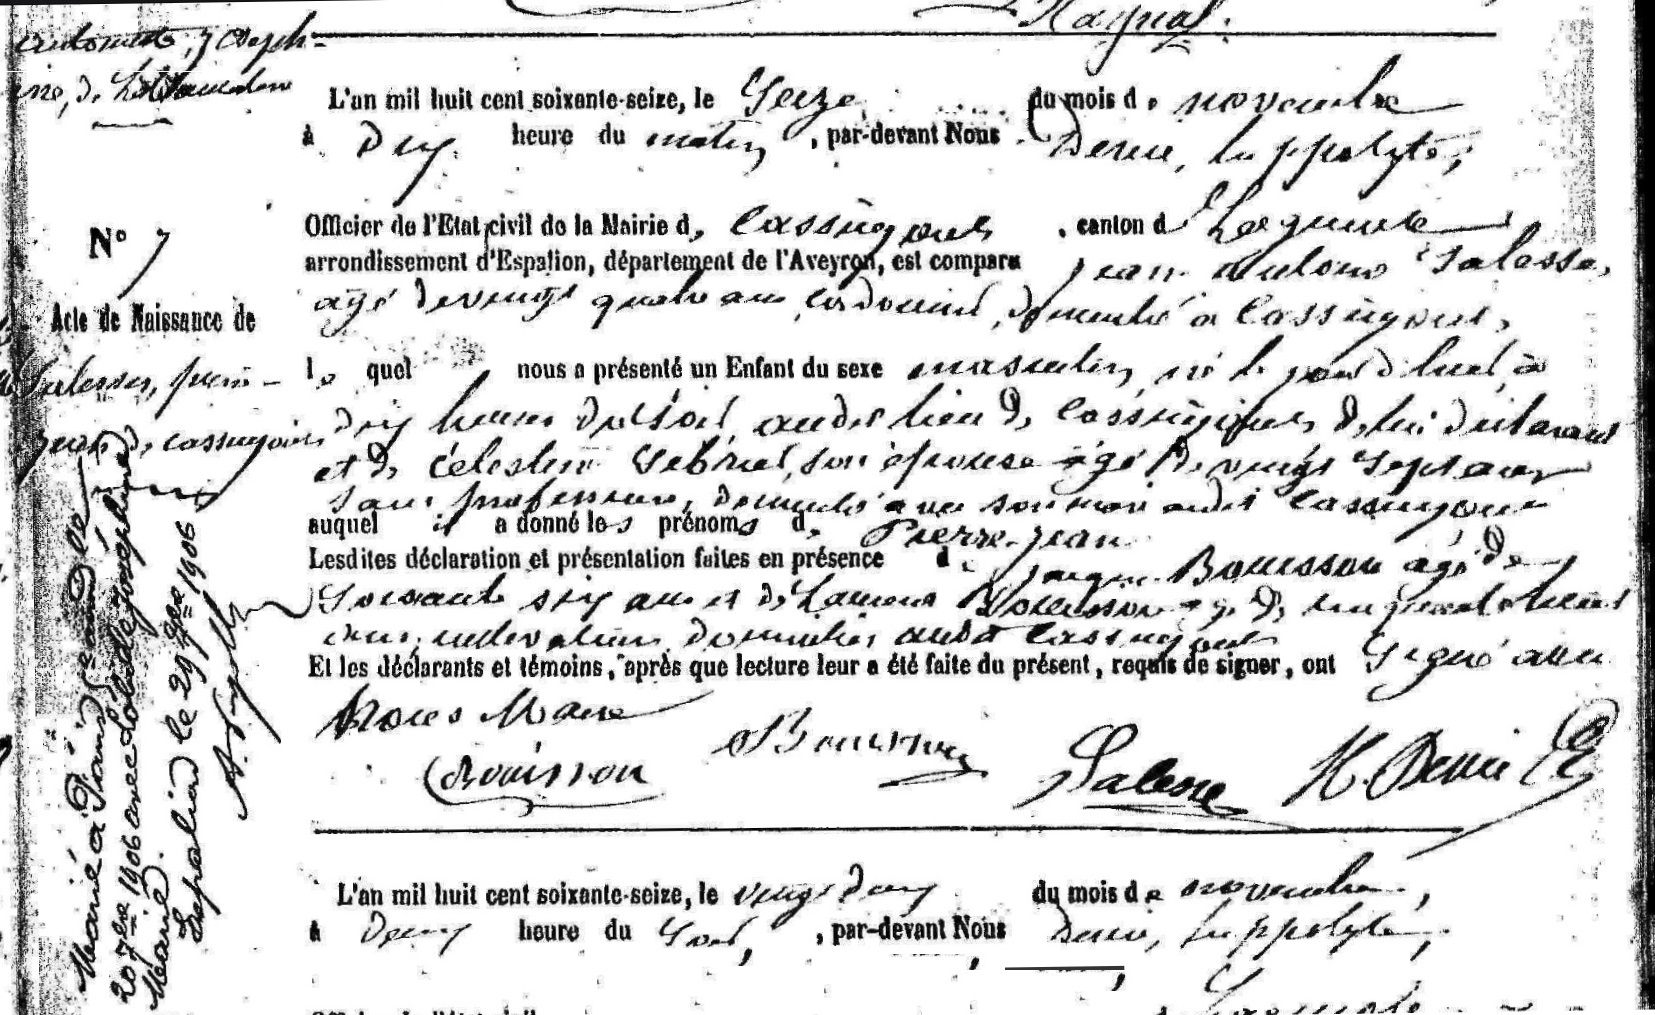 Raynal
L'an mil huit cent soixante-seize, le Seize du mois de novembre
à Dix heure du matin, par-devant Nous Denié, hippolyte,
Officier de l'Etat civil de la Mairie d, Cassuéjouls, canton d Laguiole
arrondissement d'Espalion, département de l'Aveyron, est comparu Jean antoine Salesse,
agé de vingt quatre ans, domicilié à Cassuéjouls,
N° 7
Acte de Naissance de
Salesses, pierre-
jean, de cassuejouls
le quel nous a présenté un Enfant du sexe masculin, né le jour d'hier, à
dix heures du soir audit lieu de Cassuéjouls de lui déclarant
et de célestine Gibrial, son épouse agé de vingt sept ans
sans profession, domicilié avec son mari audit Cassuéjouls
auquel il a donné les prénoms de Pierre-jean
Lesdites déclaration et présentation faites en présence de Bouisson agé de
soixante six ans et de Laurens Bouisson agé de
ans, cultivateurs domiciliés audit Cassuéjouls
Et les déclarants et témoins, après que lecture leur a été faite du présent, requis de signer, ont signé avec
Nous Maire
Bouisson Bouisson Salesse H. Denié
Marié à Paris le
20 7bre 1906 avec Joséphine
Marie
Espalion le 29 7bre 1906
L'an mil huit cent soixante-seize, le vingt deux du mois de novembre,
à Deux heure du Soir, par-devant Nous Denié, hippolyte,